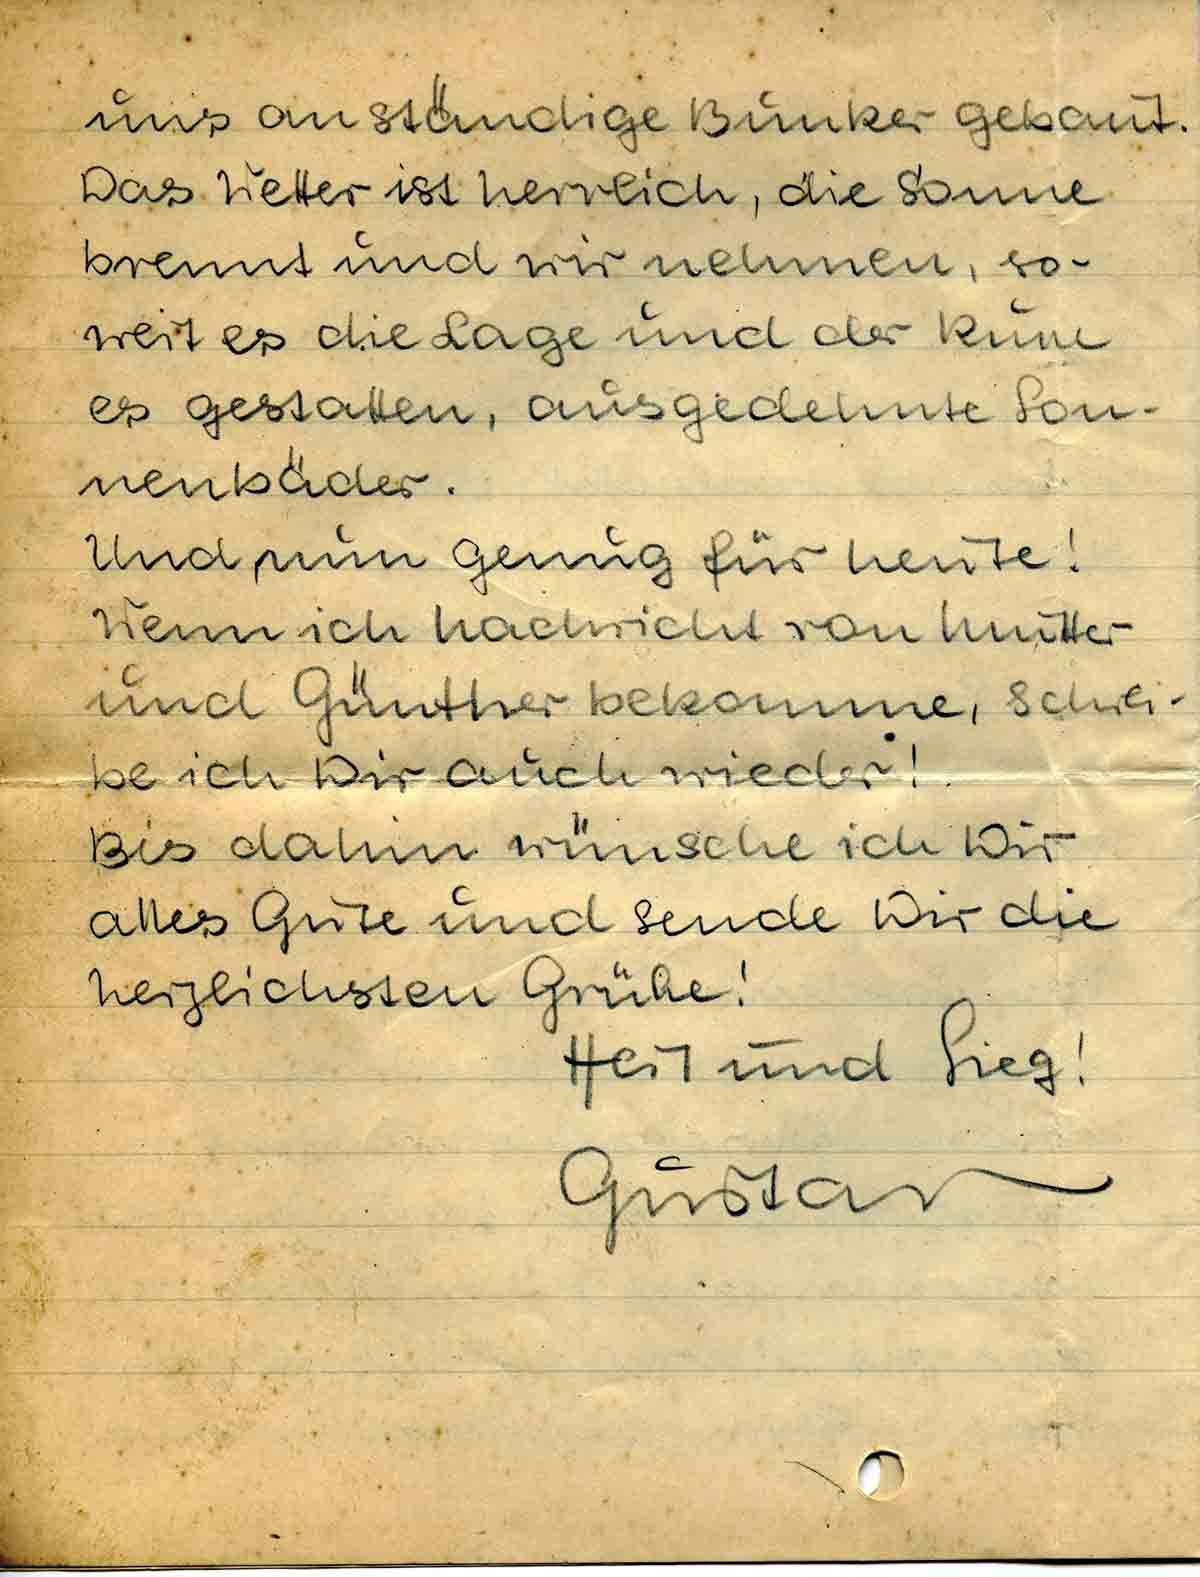 uns anständige Bunker gebaut.
Das Wetter ist herrlich, die Sonne
brennt und wir nehmen, so-
weit es die Lage und der
es gestatten, ausgedehnte Son-
nenbäder.
Und nun genug für heute!
Wenn ich Nachricht von Mutter
und Günther bekomme, schrei-
be ich Dir auch wieder!
Bis dahin wünsche ich Dir
alles Gute und sende Dir die
herzlichsten Grüße!
Heil und Sieg!
Gustav